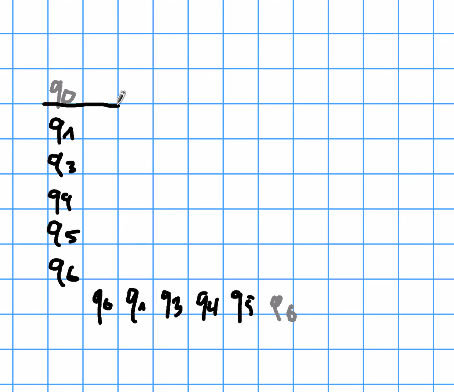 q0
q1
q3
q4
q5
q6
q0 q1 q3 q4 q5 q6